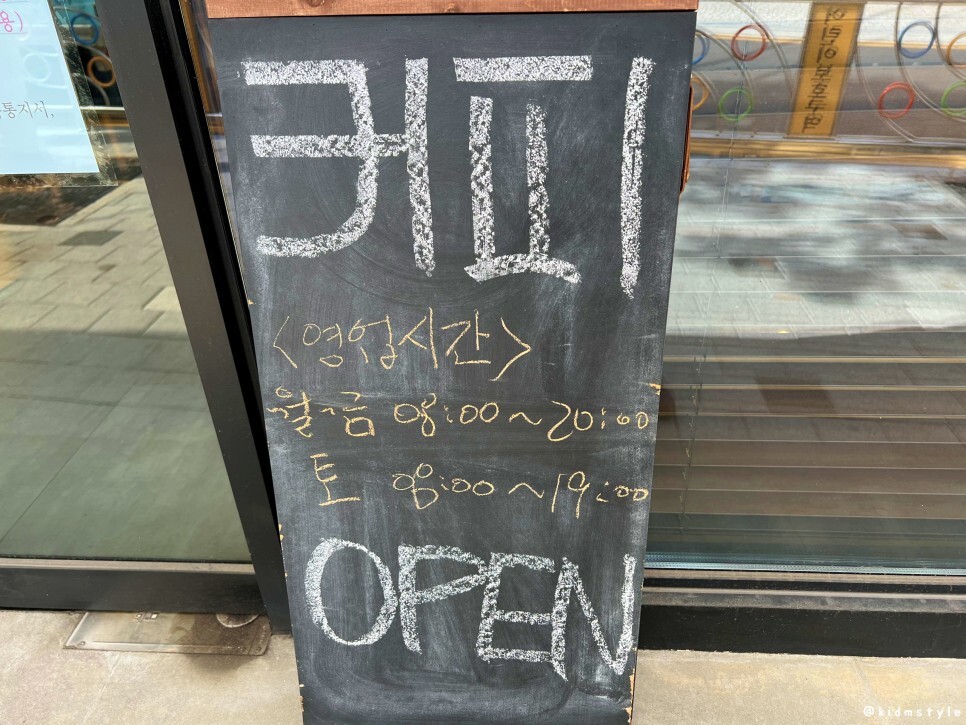 커피
<영업시간>
월~금 08:00~20:00
토 08:00~19:00
OPEN
용)
통지서,
@kidmstyle